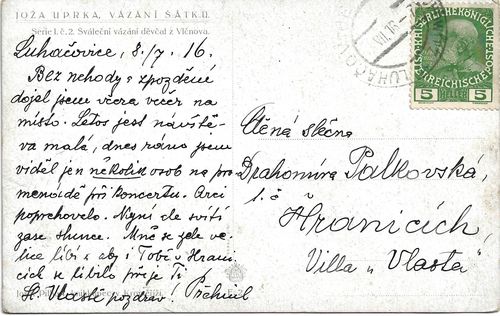 JOŽA UPRKA, VÁZÁNÍ ŠÁTKU.
Série I. č. 2. Sváteční vázání děvčad z Vlčnova.
Luhačovice, 8./7. 16.
Bez nehody s zpozdění
dojel jsem včera večer na
místo. Letos jest návště-
va malá, dnes ráno jsem
viděl jen několik osob na pro-
menádě při koncertu. Arci
poprchovalo. Nyní dle svítí
zase slunce. Mně se zde ve-
lice líbí a aby i Tobě v Hrani-
cích se líbilo přeje Ti
H. Vlastě pozdrav!
Ctěná slečna
Drahomíra Palkovská,
t. č. v
Hranicích,
Villa „Vlasta"
LUHAČOV
5 5